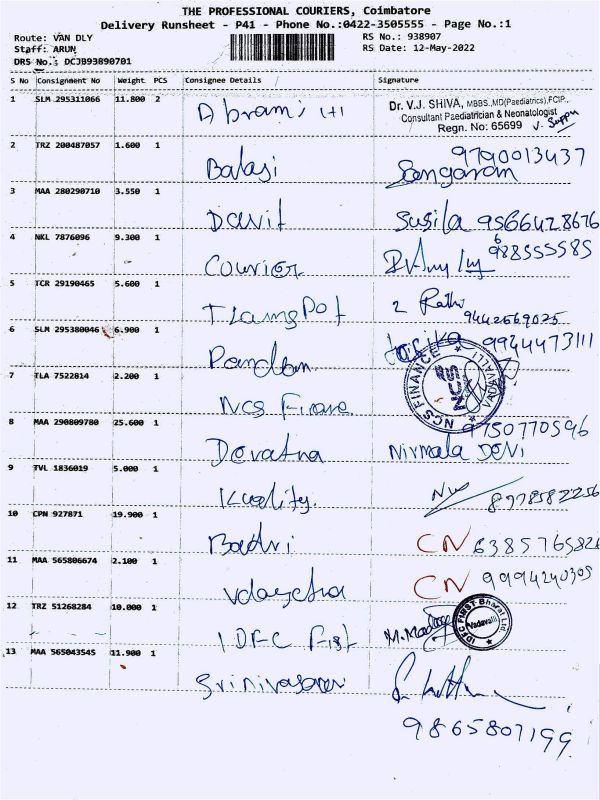 THE PROFESSIONAL COURIERS, Coimbatore
Delivery Runsheet - P41 - Phone No.:0422-3505555 - Page No.:1
Route: VAN DLY RS No.: 938907
Staff: ARUN RS Date: 12-May-2022
DRS No.: DCJB93890701
S No Consignment No Weight PCS Consignee Details Signature
1 SLM 295311066 11.800 2 Abrami
Dr. V.J. SHIVA, MBBS.,MD(Paediatrics),FCIP.,
Consultant Paediatrician & Neonatologist
Regn. No: 65699
2 TRZ 200487057 1.600 1 Balaji 9790013437
3 MAA 280290710 3.550 1 Davit Susila 9566428676
4 NKL 7876096 9.300 1 Courier
5 TCR 29190465 5.600 1 9442669075
6 SLM 295380046 6.900 1 9944473111
7 TLA 7522814 2.200 1 NCS
NCS FINANCE VADAVALLI
8 MAA 290809780 25.600 1 9750770596
Nirmala DEVI
9 TVL 1836019 5.000 1 Kuality. 8978582256
10 CPN 927871 19.900 1 Badri CN
11 MAA 565806674 2.100 1 CN 9994240305
12 TRZ 51268284 10.000 1 IDFC First
IDFC FIRST Bharat Ltd. Vadavalli
13 MAA 565043545 11.900 1 Srinivasan
9865807199